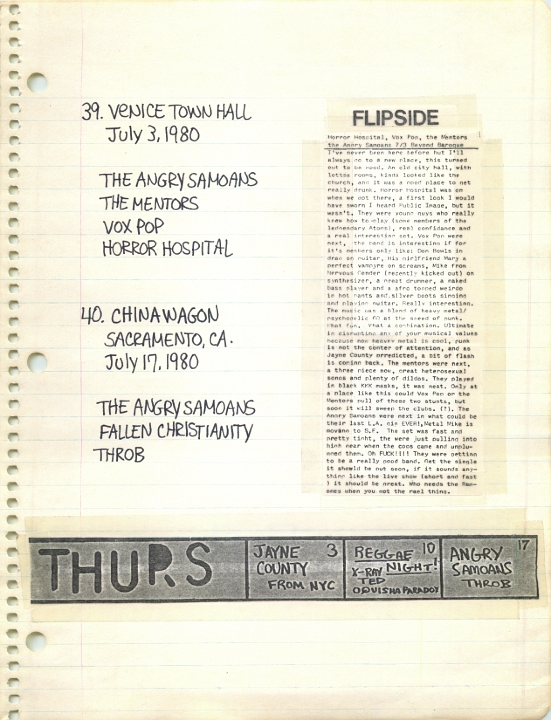 39. VENICE TOWN HALL
July 3, 1980
THE ANGRY SAMOANS
THE MENTORS
VOX POP
HORROR HOSPITAL
40. CHINAWAGON
SACRAMENTO, CA.
July 17, 1980
THE ANGRY SAMOANS
FALLEN CHRISTIANITY
THROB
FLIPSIDE
Horror Hospital, Vox Pop, the Mentors
the Angry Samoans 7/3 Beyond Baroque
I've never been here before but I'll
always go to a new place, this turned
out to be An old city hall, with
rooms, kinda looked like the
church, and it was a good place to get
really drunk. Horror Hospital was on
when we got there, a first look I would
have sworn I heard Public Image, but it
wasn't. They were young guys who really
knew how to play (some members of the
legendary Atoms), real confidence and
a real interesting set. Vox Pop were
next, the band is interesting if for
it's members only like: Don Bowls in
drag on guitar, His girlfriend Mary a
perfect vampire on screams, Mike from
Nervous Gender (recently kicked out) on
synthesizer, a great drummer, a naked
bass player and a afro topped weirdo
in hot pants and silver boots singing
and guitar. Really interesting.
The music was a blend of heavy metal/
psychedelic at the speed of punk.
that fun. What a combination. Ultimate
in any of your musical values
because now heavy metal is cool, punk
is not the center of attention, and as
Jayne County predicted, a bit of flash
is comin back. The mentors were next,
a three piece now, great heterosexual
sense and plenty of dildos. They played
in black KKK masks, it was neat. Only at
a place like this could Vox Pop or the
Mentors pull of these two stunts, but
soon it will sweep the clubs. (?). The
Angry Samoans were next in what could be
their last L.A. gig EVER!, Metal Mike is
moving to S.F. The set was fast and
pretty tight, the were just pulling into
high gear when the cops came and unplu-
gged them. Oh FUCK!!!! They were getting
to be a really good band. Get the single
it should be out soon, if it sounds any-
thing like the live show (short and fast
) it should be great. Who needs the Ram-
ones when you got the real thing.
THURS
JAYNE 3
COUNTY
FROM NYC
REGGAE 10
NIGHT!
X-RAY
TED
PARADOX
ANGRY 17
SAMOANS
THROB